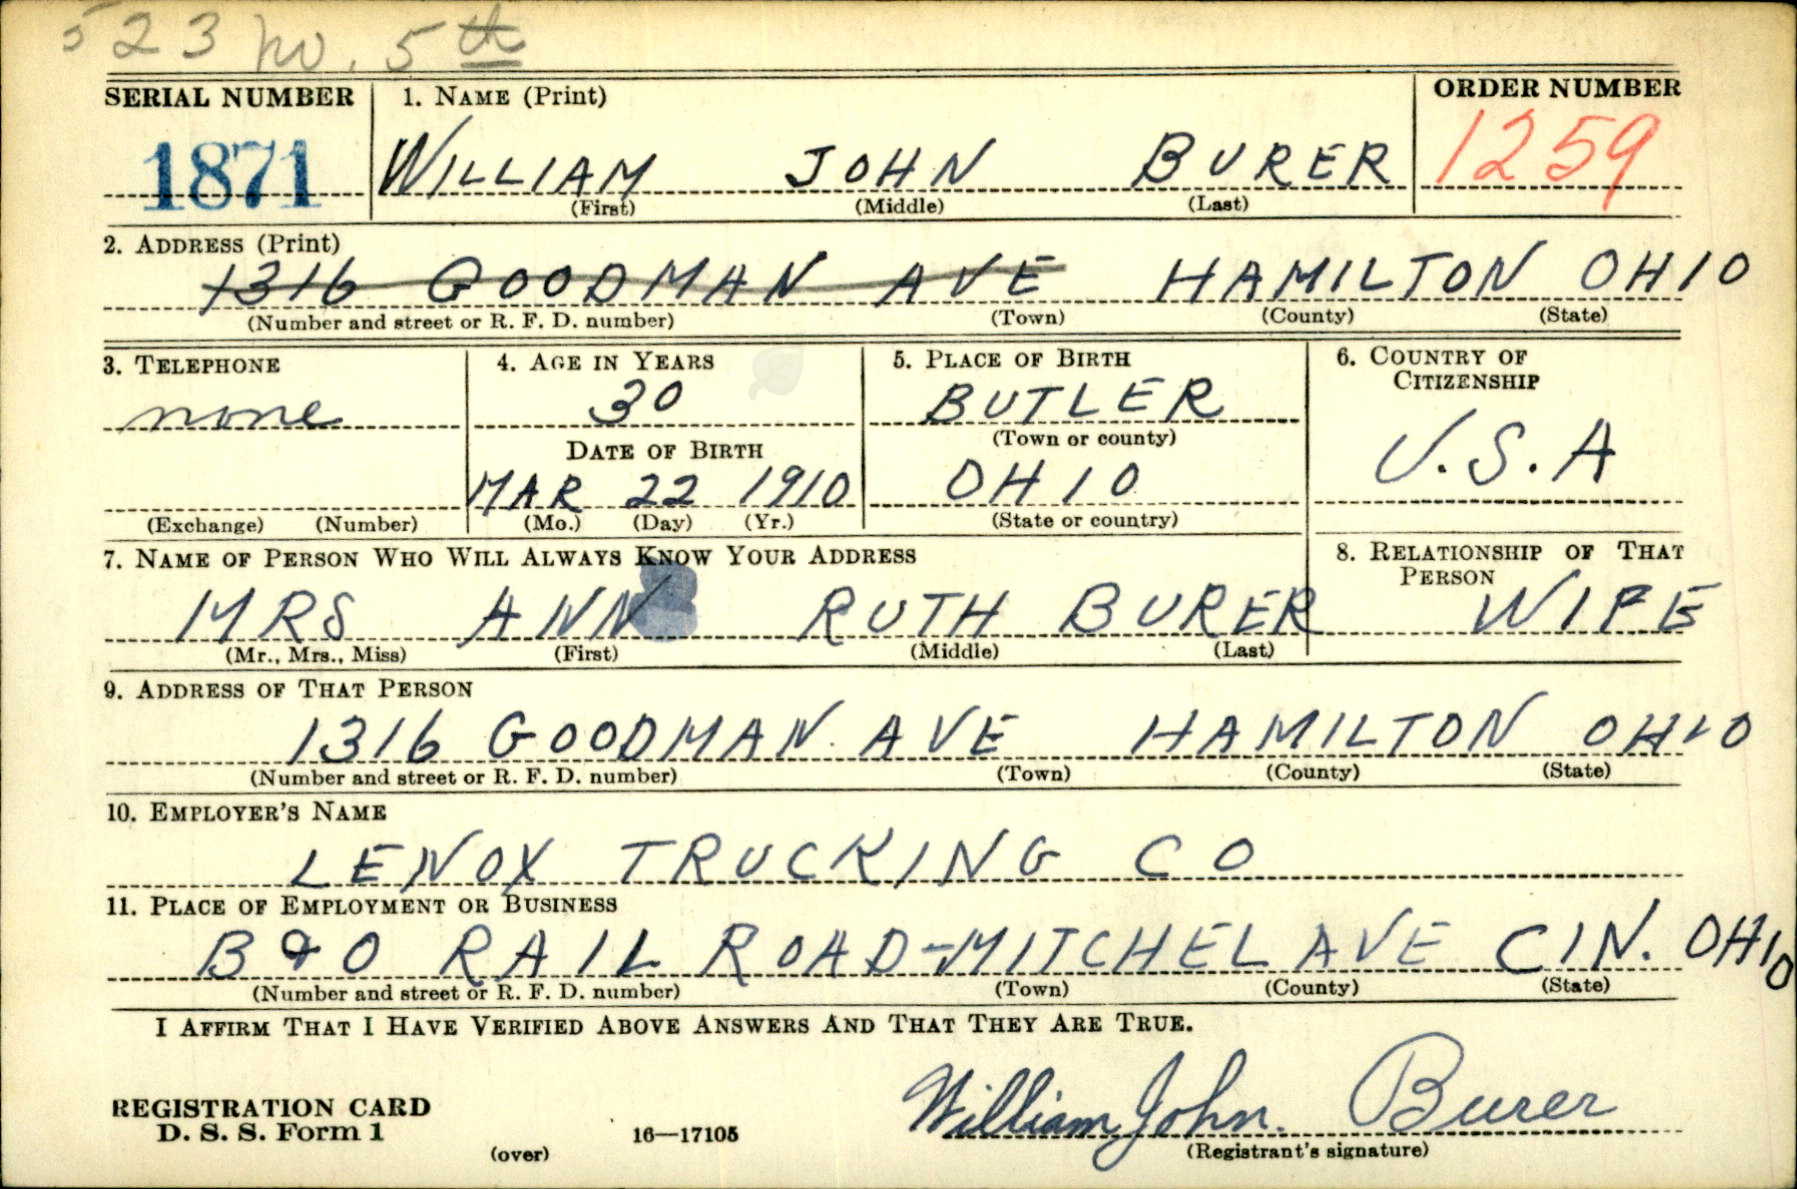 523 no. 5th
SERIAL NUMBER 1. NAME (Print) ORDER NUMBER
1871 WILLIAM JOHN BURER 1259
(First) (Middle) (Last)
2. ADDRESS (Print)
1316 GOODMAN AVE HAMILTON OHIO
(Number and street or R. F. D. number) (Town) (County) (State)
3. TELEPHONE 4. AGE IN YEARS 5. PLACE OF BIRTH 6. COUNTRY OF
CITIZENSHIP
none 30 BUTLER
DATE OF BIRTH (Town or county) U.S.A
MAR 22 1910 OHIO
(Exchange) (Number) (Mo.) (Day) (Yr.) (State or country)
7. NAME OF PERSON WHO WILL ALWAYS KNOW YOUR ADDRESS 8. RELATIONSHIP OF THAT
PERSON
MRS ANN RUTH BURER WIFE
(Mr., Mrs., Miss) (First) (Middle) (Last)
9. ADDRESS OF THAT PERSON
1316 GOODMAN AVE HAMILTON OHIO
(Number and street or R. F. D. number) (Town) (County) (State)
10. EMPLOYER'S NAME
LENOX TRUCKING CO
11. PLACE OF EMPLOYMENT OR BUSINESS
B & O RAIL ROAD-MITCHEL AVE CIN. OHIO
(Number and street or R. F. D. number) (Town) (County) (State)
I AFFIRM THAT I HAVE VERIFIED ABOVE ANSWERS AND THAT THEY ARE TRUE.
REGISTRATION CARD
D. S. S. Form 1 William John. Burer
(over) 16—17105 (Registrant's signature)